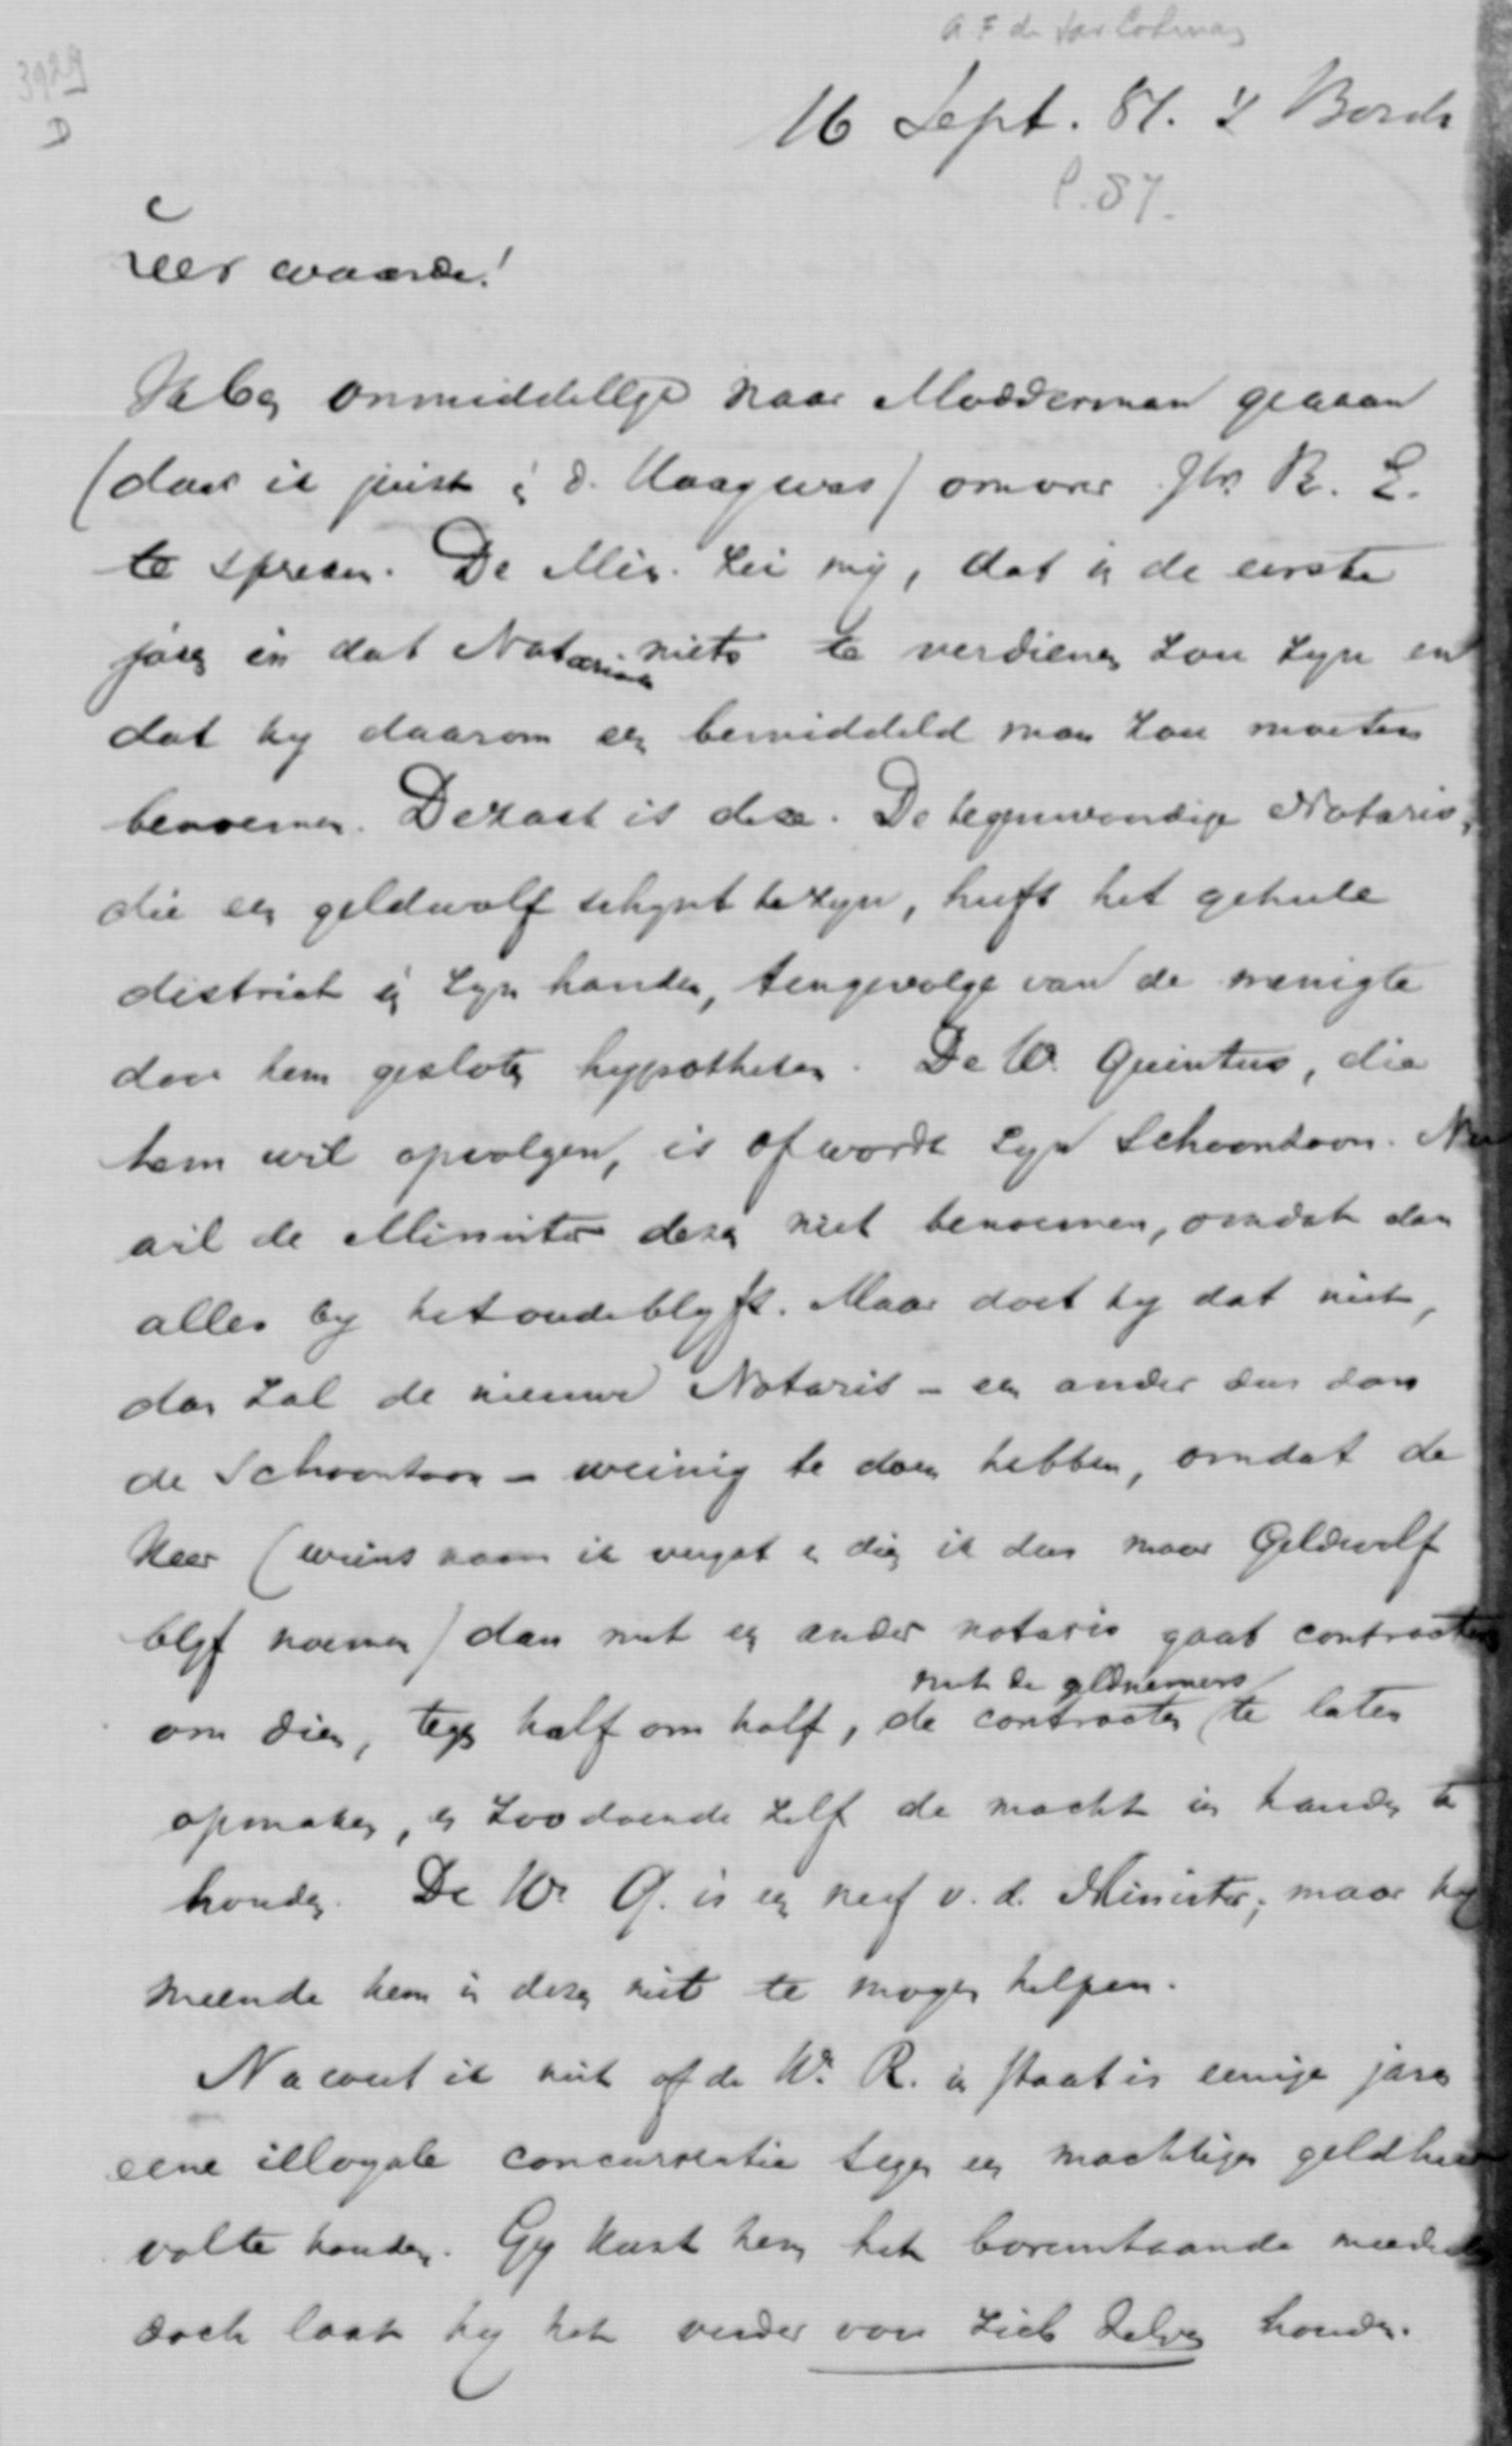 A F de Sav Lohman
3929
D
16 Sept. 81. 's Bosch
P. 87.
Zeer waarde!
Ik ben onmiddellyk naar Modderman gegaan
(daar ik juist i d. Haag was) om over Jhr. R. L.
te spreken. De Min. zei mij, dat in de eerste
jaren in dat Notariaat niets te verdienen zou zyn en
dat hy daarom een bemiddeld man zou moeten
benoemen. De zaak is deze. De tegenwoordige Notaris,
die een geldwolf schynt te zyn, heeft het geheele
district in zyn handen, tengevolge van de menigte
door hem gesloten hypotheken. De Hr. Quintus, die
hem wil opvolgen, is of wordt zyn Schoonzoon. Nu
wil de Minister dezen niet benoemen, omdat dan
alles by het oude blyft. Maar doet hy dat niet,
dan zal de nieuwe Notaris – een ander dus dan
de Schoonzoon – weinig te doen hebben, omdat de
Heer (wiens naam ik vergat en dien ik dus maar Geldwolf
blyf noemen) dan met een ander notaris gaat contracteren
met de geldnemers
om dien, tegen half om half, de contracten te laten
opmaken, en zoodoende zelf de macht in handen te
houden. De Hr. Q. is een neef v. d. Minister; maar hy
meende hem in dezen niet te mogen helpen.
Nu weet ik niet of de Hr. R. in staat is eenige jaren
eene illoyale concurrentie tegen een machtigen geldheer
vol te houden. Gy kunt hem het bovenstaande mededeelen
doch laat hy het verder voor zich zelven houden.